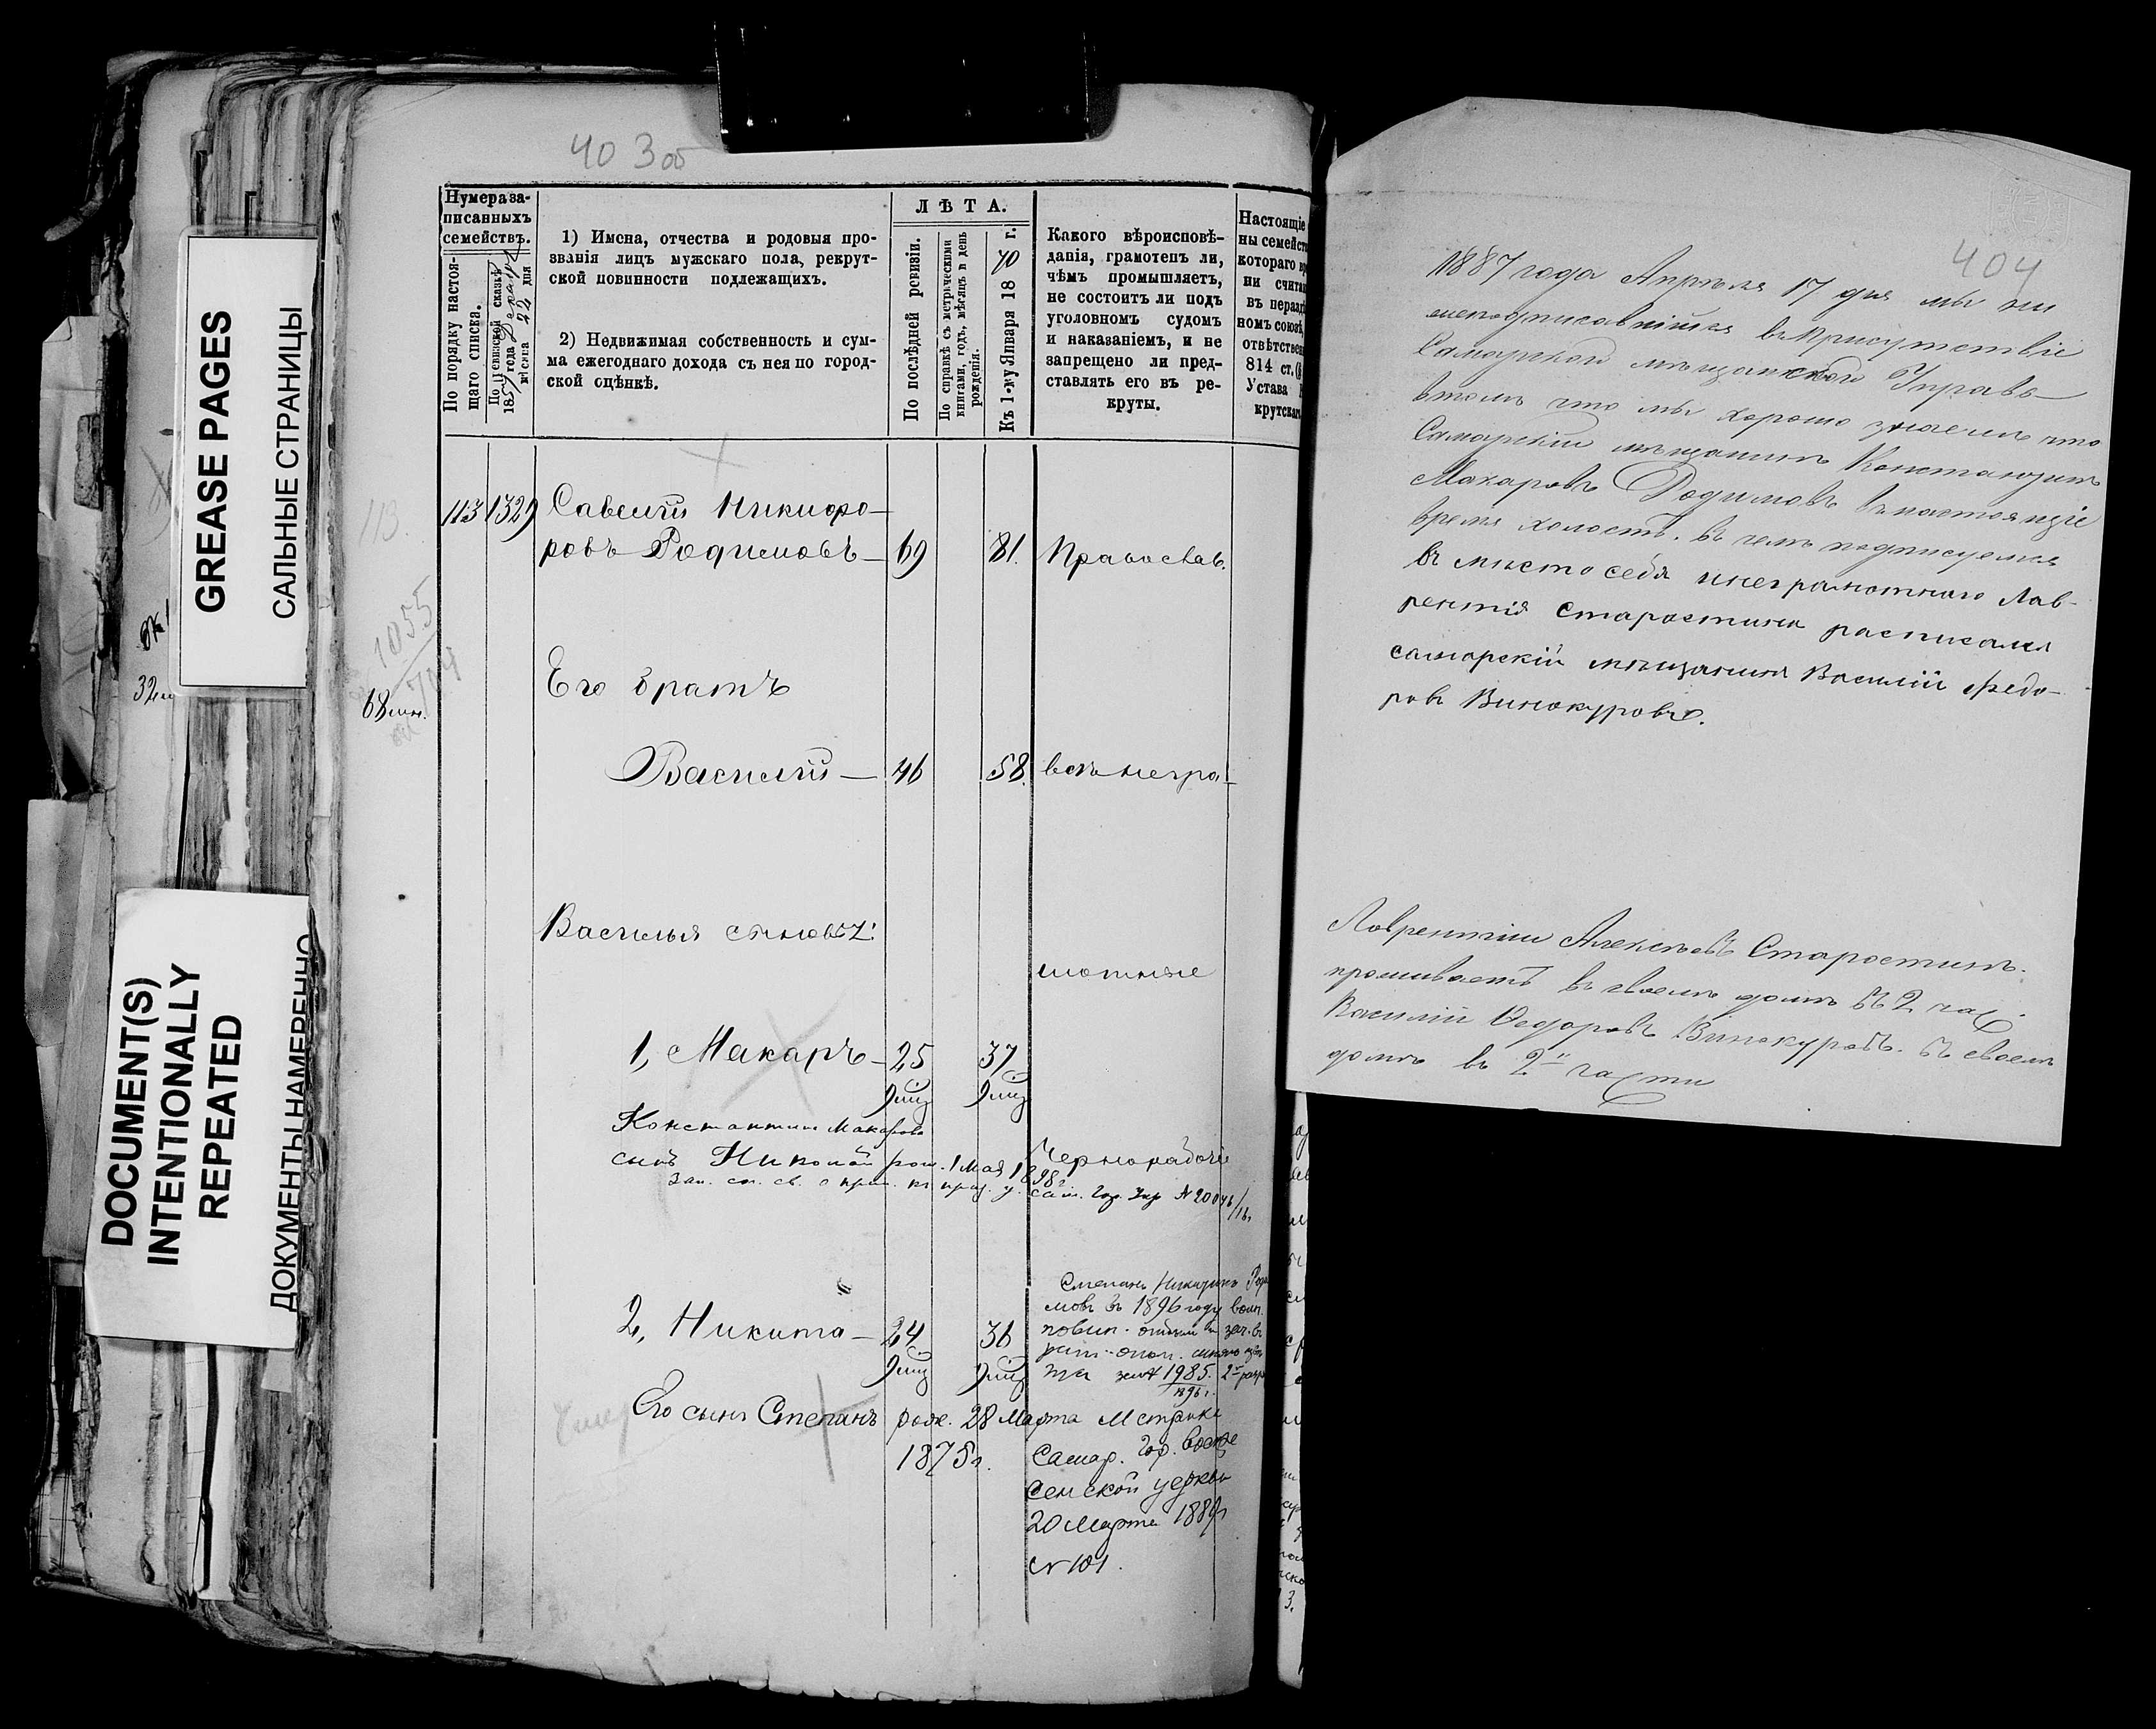 GREASE PAGES
САЛЬНЫЕ СТРАНИЦЫ
DOCUMENT(S)
INTENTIONALLY
REPEATED
ДОКУМЕНТЫ НАМЕРЕННО
403 об
Нумера за-
писанныхъ
семействъ.
По порядку настоя-
щаго списка.
По ревизской сказкѣ
18 года
мѣсяца дня
1) Имена, отчества и родовыя про-
званія лицъ мужскаго пола, рекрут-
ской повинности подлежащихъ.
2) Недвижимая собственность и сум-
ма ежегоднаго дохода съ нея по город-
ской оцѣнкѣ.
ЛѢТА.
По послѣдней ревизіи.
По справкѣ съ метрическими
книгами, годъ, мѣсяцъ и день
рожденія.
Къ 1-му Января 1870 г.
Какого вѣроисповѣ-
данія, грамотенъ ли,
чѣмъ промышляетъ,
не состоитъ ли подъ
уголовномъ судомъ
и наказаніемъ, и не
запрещено ли пред-
ставлять его въ ре-
круты.
Настоящіе
ны семейст
котораго вр
ни счита
въ неразд
номъ союзѣ,
отвѣтствен
814 ст. (
Устава
крутскаг
113.
1055
68 мц.
32
113 1329 Савелій Никифо-
ровъ Родимовъ — 69 81. Православ.
Его братъ
Василій — 46 58. всѣ негра-
Василья сыновья:
мотные
1, Макаръ — 25 37
Константинъ Макаровъ
Чернорабочій
сынъ Николай рож. 1 Мая 1898 г
№ 20046
Степанъ Никитинъ Роди
мовъ въ 1896 году воин.
2, Никита — 24 36 повин.
1985. 2
Его сынъ Степанъ рож. 28 Марта Метрика
1875 г. Самар. Гор. Возне
сенской церкви
20 Марта 1889 г
№ 101.
404
1887 года Апрѣля 17 дня мы ни
жеподписавшіися въ присутствіе
Самарской мѣщанской Управѣ
втомъ что мы хорошо знаемъ что
Самарскій мѣщанинъ Константинъ
Макаровъ Родимовъ внастоящіе
время холостъ. въ чемъ подписуемся
въ мѣсто себя инеграмотнаго Лав-
рентія Старостина расписался
самарскій мѣщанинъ Василій Федо-
ровъ Винокуровъ.
Лаврентіи Алексѣевъ Старостинъ.
проживаетъ въ своемъ домѣ въ 2 час.
Василіи Ѳедоровъ Винокуровъ. въ своемъ
домѣ въ 2й части